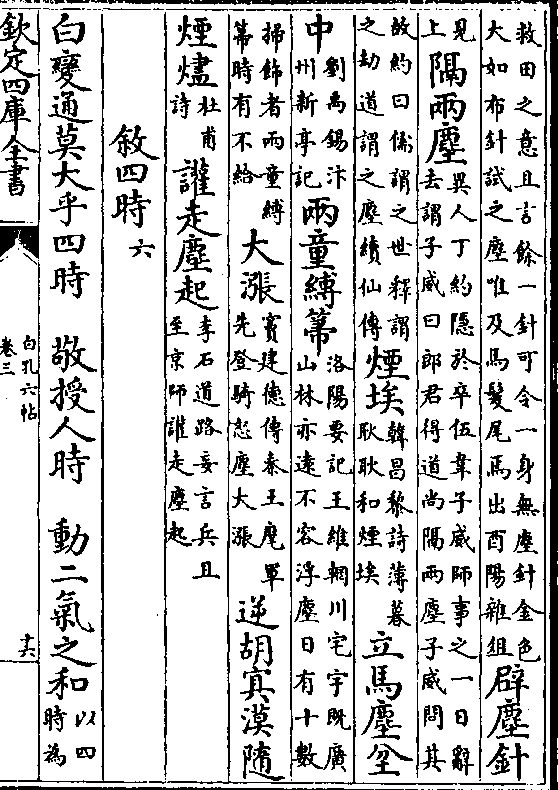 救田之意且言餘一針可令一身無塵針金色
大如布針試之塵唯及馬鬉尾馬出酉陽雜俎
辟塵針
見
上
隔兩塵
異人丁約隱於卒伍韋子威師事之一日辭
去謂子威曰郎君得道尚隔兩塵子威問其
故約曰儒謂之世釋謂
之劫道謂之塵續仙傳
煙埃
韓昌黎詩薄暮
耿耿和煙埃
立馬塵坌
中
劉禹錫汴
州新亭記
兩童縛箒
洛陽要記王維輞川宅宇既廣
山林亦遠不容浮塵日有十數
掃飾者兩童縛
箒時有不給
大漲
竇建德傳秦王麾單
先登騎怒塵大漲
逆胡冥漠隨
煙燼
杜甫
詩
讙走塵起
李石道路妄言兵且
至京師讙走塵起
敘四時 六
白變通莫大乎四時 敬授人時 動二氣之和
以四
時為
欽定四庫全書
白孔六帖
卷三
十六